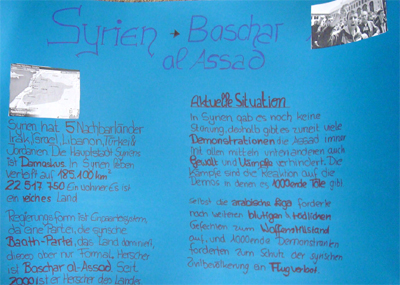 Syrien → Baschar
al Assad
Syrien hat 5 Nachbarländer
Irak, Israel, Libanon, Türkei &
Jordanien. Die Hauptstadt Syriens
ist Damaskus. In Syrien leben
verteilt auf 185.100 km²
22 517 750 Einwohner. Es ist
ein reiches Land
Regierungsform ist Einparteiensystem,
da eine Partei, die syrische
Baath-Partei, das Land dominiert,
dieses aber nur Formal, Herscher
ist Baschar al-Assad. Seit
2000 ist er Herscher des Landes
Aktuelle Situation
In Syrien gab es noch keine
Störung, deshalb gibt es zurzeit viele
Demonstrationen die Assad immer
mit allen mitteln unteranderem auch
Gewalt und Kämpfe verhindert. Die
Kämpfe sind die Reaktion auf die
Demos, in denen es 1000ende Tote gibt.
selbst die arabische Liga forderte
nach weiteren blutigen & tödlichen
Gefechten zum Waffenstillstand
auf, und 1000ende Demonstranten
forderten zum Schutz der syrischen
Zivilbevölkerung ein Flugverbot.